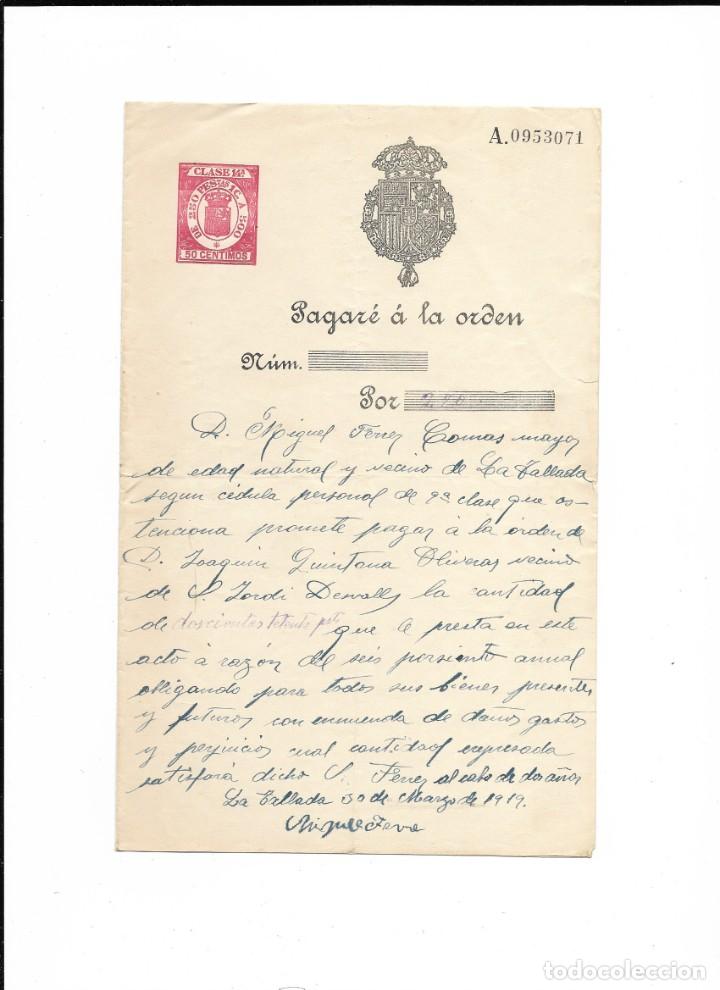 A.0953071
CLASE 14ª
DE 250 PESTAS 1C. A 500
50 CENTIMOS
Pagaré á la orden
Núm.
Por
D. Miguel Ferrer Comas mayor
de edad natural y vecino de La Tallada
segun cédula personal de 9ª clase que os-
tenciona promete pagar á la orden de
D. Joaquin Quintana Oliveras vecino
de S. Jordi Desvalls la cantidad
de doscientos setenta pts que le presta en este
acto á razón de seis porsiento annual
obligando para todos sus bienes presentes
y futuros con enmienda de daños gastos
y perjuicios cual cantidad expresada
satisfará dicho S. Ferrer al cabo de dos años
La Tallada 30 de Marzo de 1919.
Miguel Ferre
todocoleccion